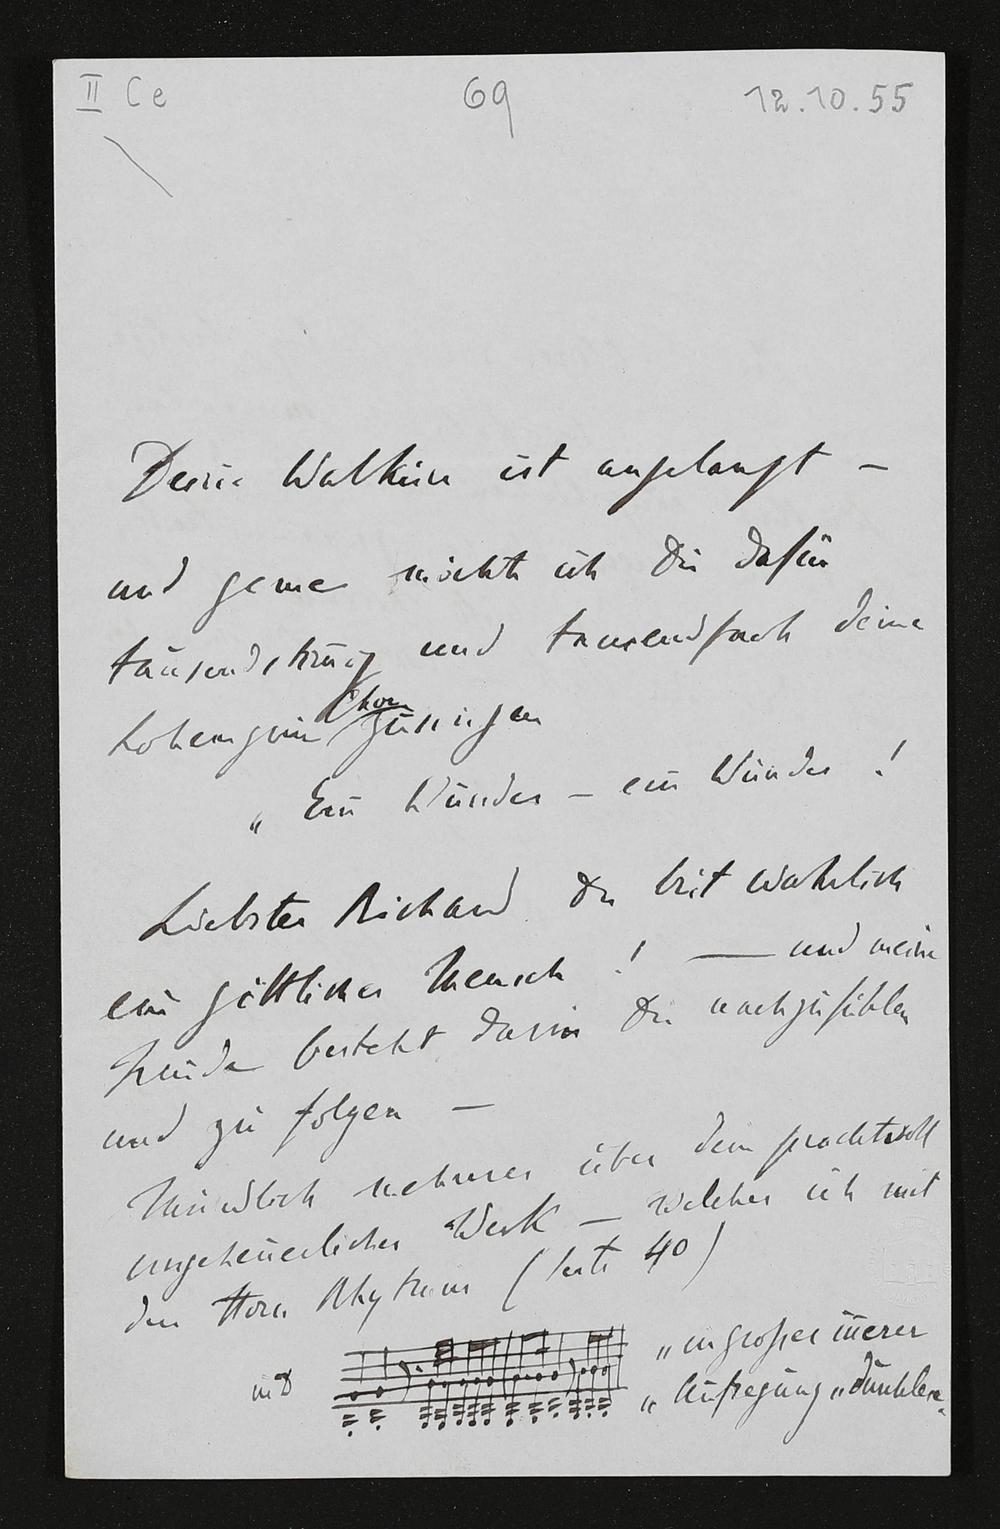 II Ce 69 12.10.55
Deine Walküre ist angelangt –
und gerne möchte ich Dir dafür
tausendstimig und tausendfach deinen
Lohengrin Chor zusingen
„ Ein Wunder – ein Wunder !
Liebster Richard Du bist wahrlich
ein göttlicher Mensch ! — und meine
Freude besteht darin Dir nachzufühlen
und zu folgen –
Mündlich mehreres über dein prachtvoll
ungeheuerliches Werk – welches ich mit
den Horn Rhythmus (Seite 40)
in D „in grosser innerer
„Aufregung„ durchlese.